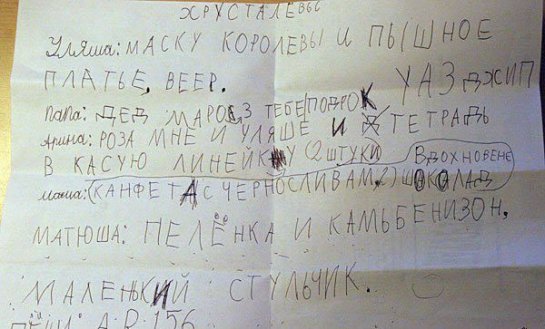 ХРУСТАЛЕВЫ
Уляша: МАСКУ КОРОЛЕВЫ И ПЫШНОЕ
ПЛАТЬЕ, ВЕЕР.
УАЗ ДЖИП
ПАПА: ДЕД МАРОС, З ТЕБЕ ПОДРОК
Арина: РОЗА МНЕ И УЛЯШЕ И ТЕТРАДЬ
В КАСУЮ ЛИНЕЙКУ (2 ШТУКИ
ВДОХНОВЕНЕ
мама: (КАНФЕТА С ЧЕРНОСЛИВАМ, 2) ШОКОЛАД
МАТЮША: ПЕЛЁНКА И КАМЬБЕНИЗОН,
МАЛЕНЬКИЙ СТУЛЬЧИК.